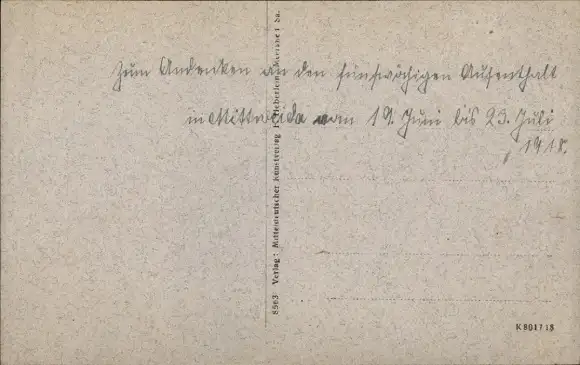 Zum Andenken an den fünfwöchigen Aufenthalt
in Mittweida vom 19. Juni bis 23. Juli
1918.
8563 Verlag: Mitteldeutscher Kunstverlag
K 801718